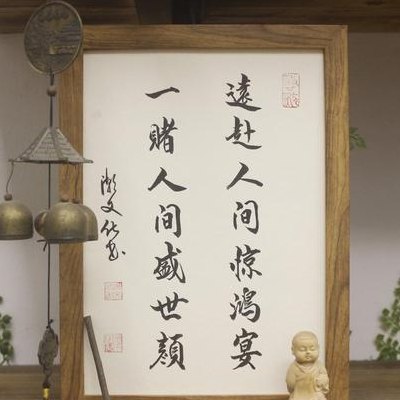 遠赴人间惊鸿宴
一賭人间盛世顔